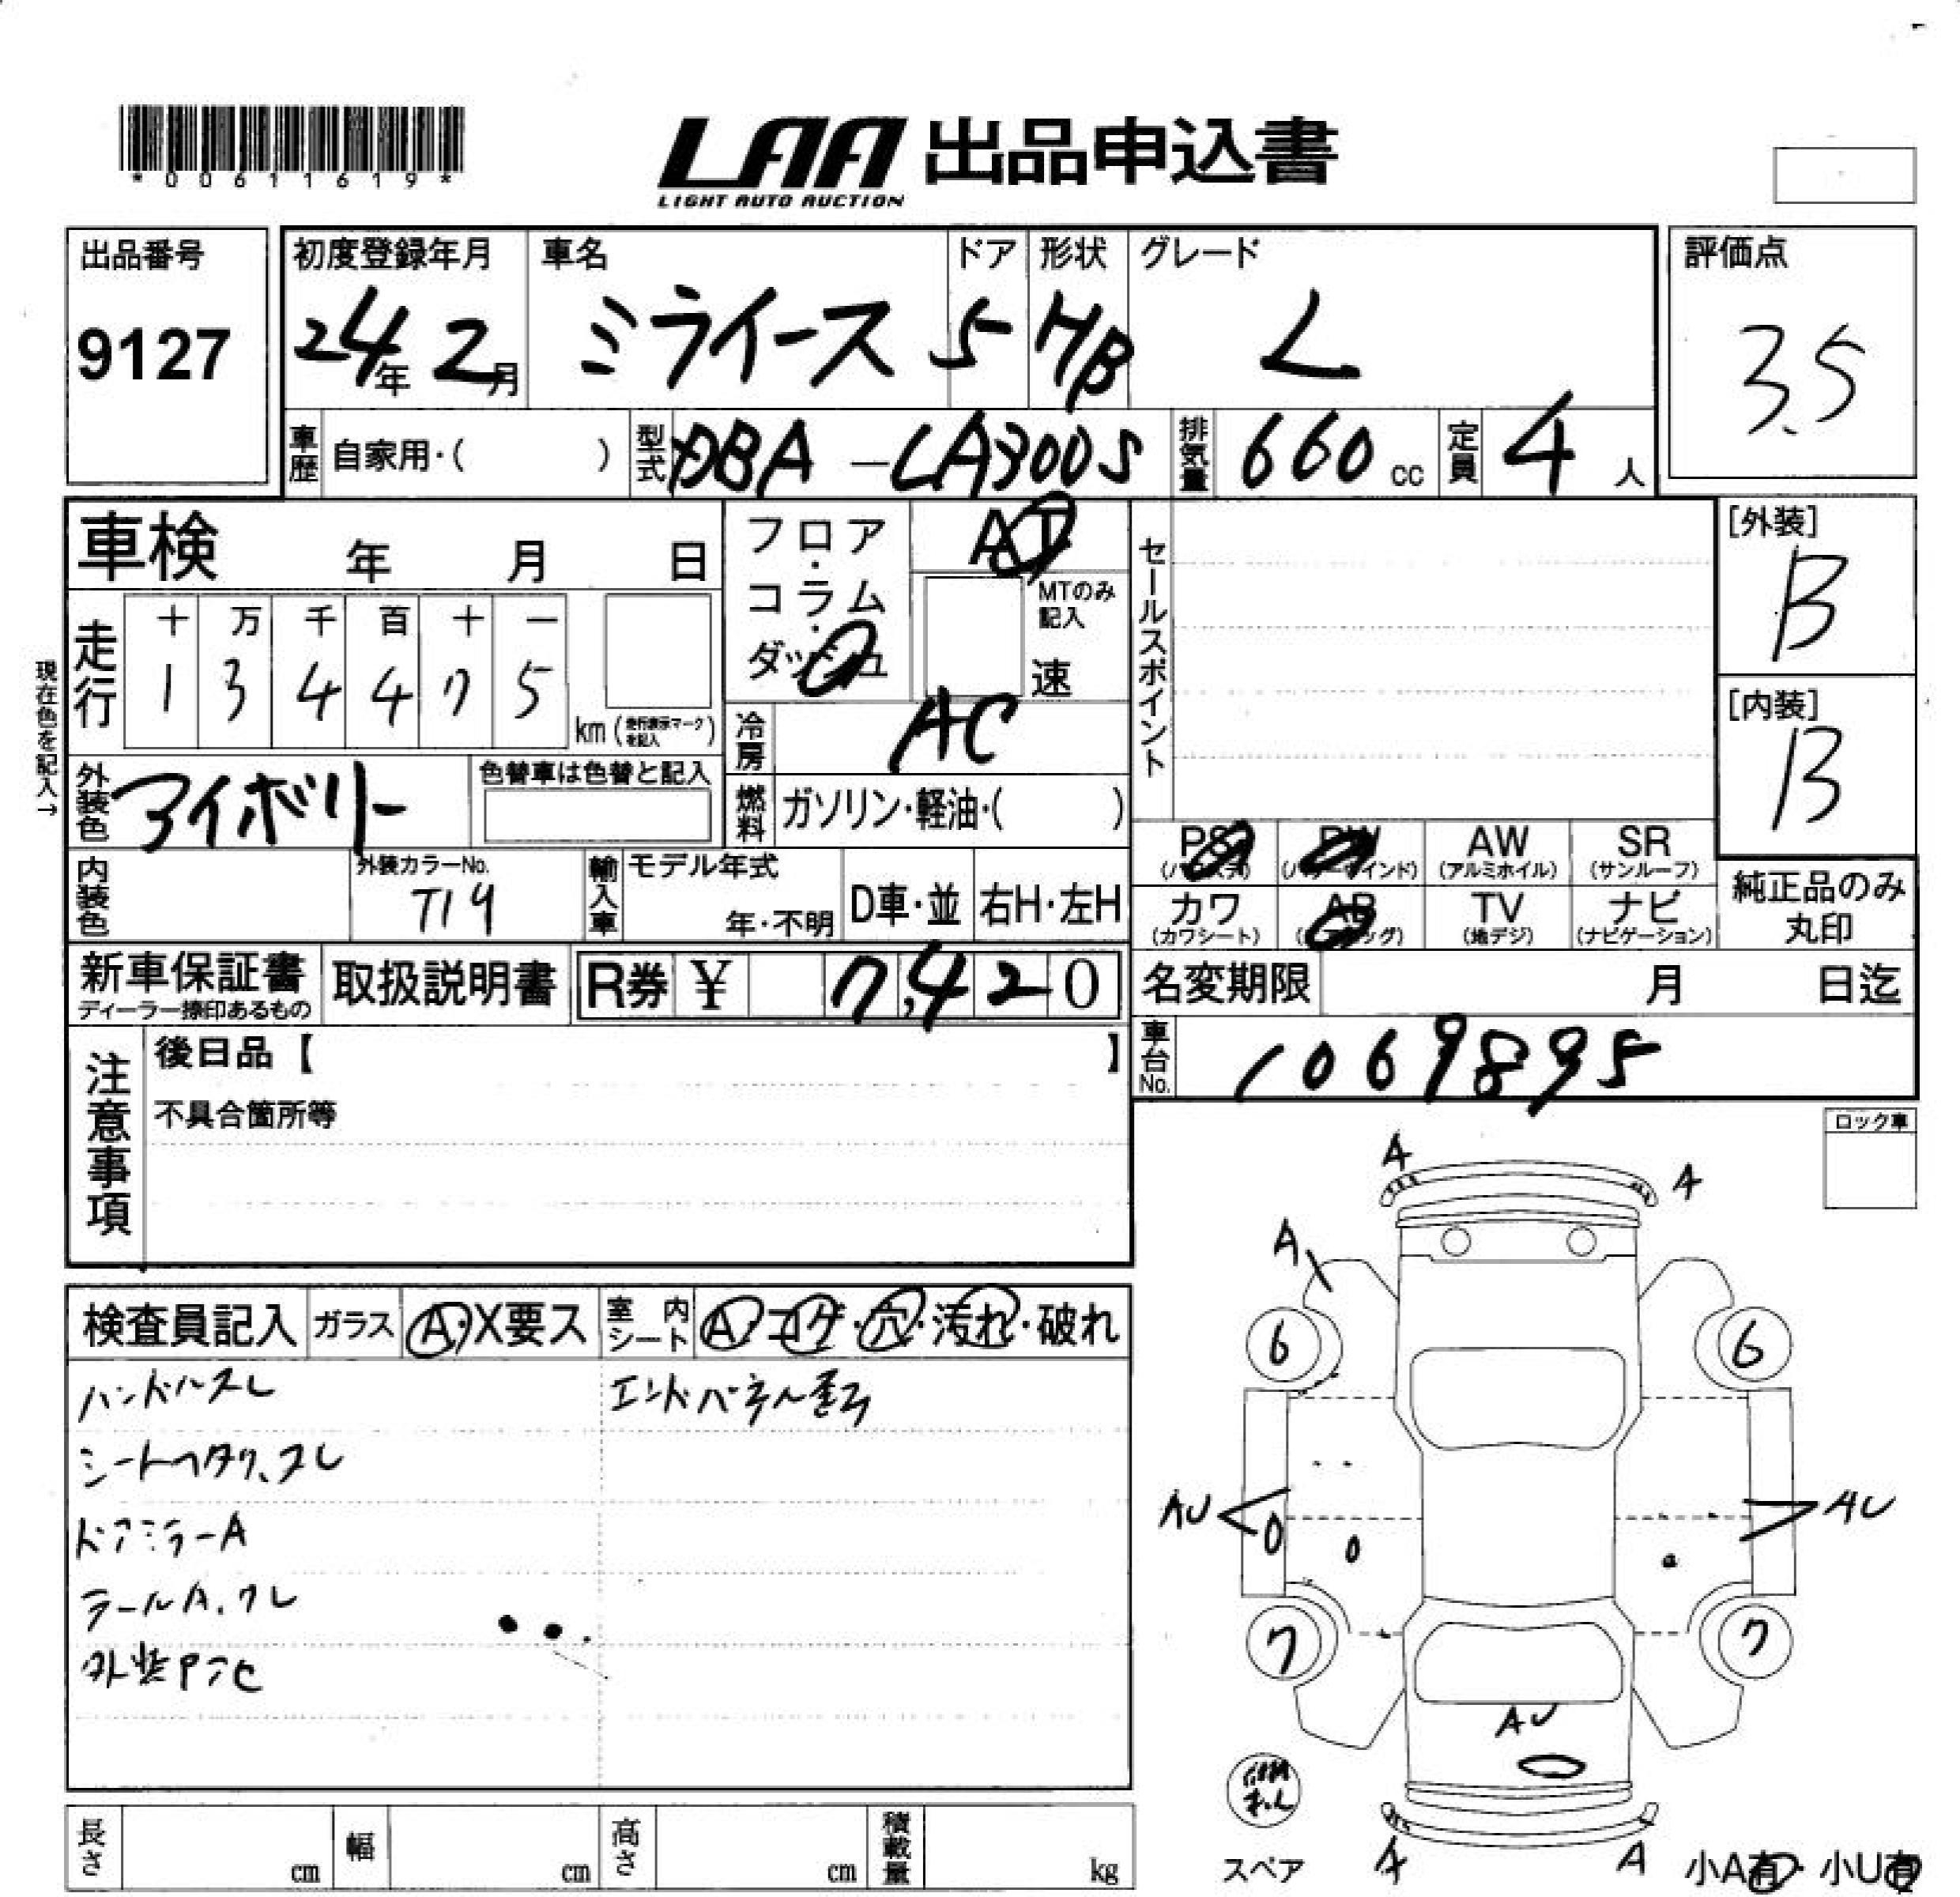 *00611619*
LAA 出品申込書
LIGHT AUTO AUCTION
出品番号
9127
初度登録年月
24年 2月
車名
ミライース
ドア
5
形状
HB
グレード
L
評価点
3.5
車歴 自家用・( )
型式 DBA-LA300S
排気量 660 cc
定員 4 人
車検 年 月 日
フロア・コラム・ダッシュ
AT
MTのみ記入
速
セールスポイント
[外装]
B
[内装]
B
現在色を記入→
走行
十 万 千 百 十 一
1 3 4 4 7 5
km (走行表示マークを記入)
冷房 AC
外装色 アイボリー
色替車は色替と記入
燃料 ガソリン・軽油・( )
内装色
外装カラーNo.
T19
輸入車
モデル年式
年・不明
D車・並
右H・左H
PS (パワステ)
PW (パワーウインド)
AW (アルミホイル)
SR (サンルーフ)
カワ (カワシート)
AB (エアバッグ)
TV (地デジ)
ナビ (ナビゲーション)
純正品のみ丸印
新車保証書
ディーラー捺印あるもの
取扱説明書
R券 ¥ 7,420
名変期限 月 日迄
車台No. 1069895
注意事項
後日品【 】
不具合箇所等
ロック車
検査員記入
ガラス A・X要ス
室内シート A・コゲ・穴・汚れ・破れ
ハンドルスレ
エンドパネル歪
シートヘタリ、スレ
ドアミラーA
テールA.ワレ
外装P
A
A
A
6
6
AU
AU
7
7
AU
スペア
A
A
小A有・小U有
長さ cm
幅 cm
高さ cm
積載量 kg